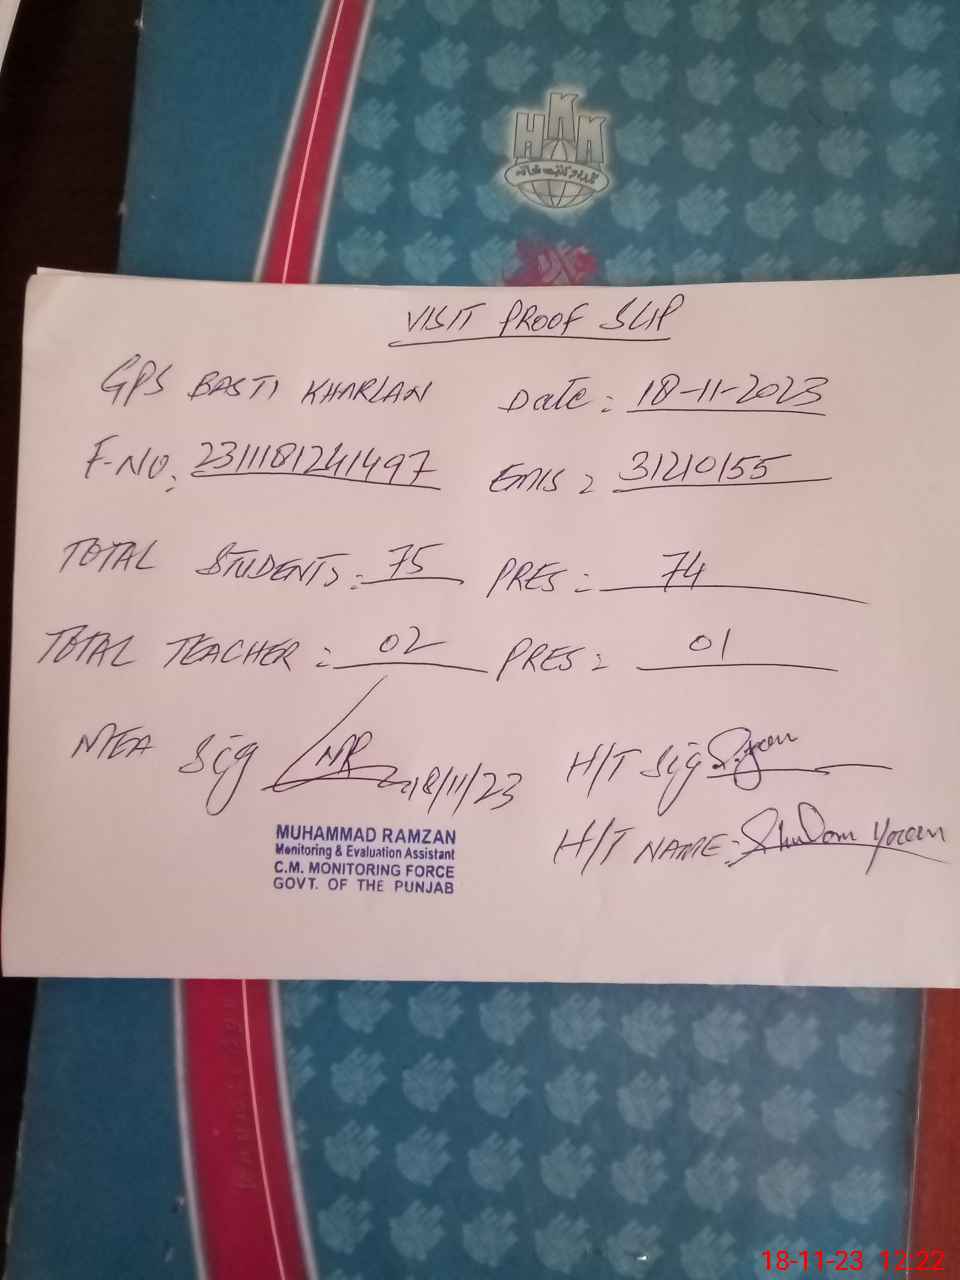 HKK
VISIT PROOF SLIP
GPS BASTI KHARLAN Date: 18-11-2023
F-NO: 2311181241497 EMIS: 31210155
TOTAL STUDENTS: 75 PRES: 74
TOTAL TEACHER: 02 PRES: 01
MEA Sig MR 18/11/23 H/T Sig
MUHAMMAD RAMZAN
Monitoring & Evaluation Assistant
C.M. MONITORING FORCE
GOVT. OF THE PUNJAB
H/T NAME:
18-11-23 12:22